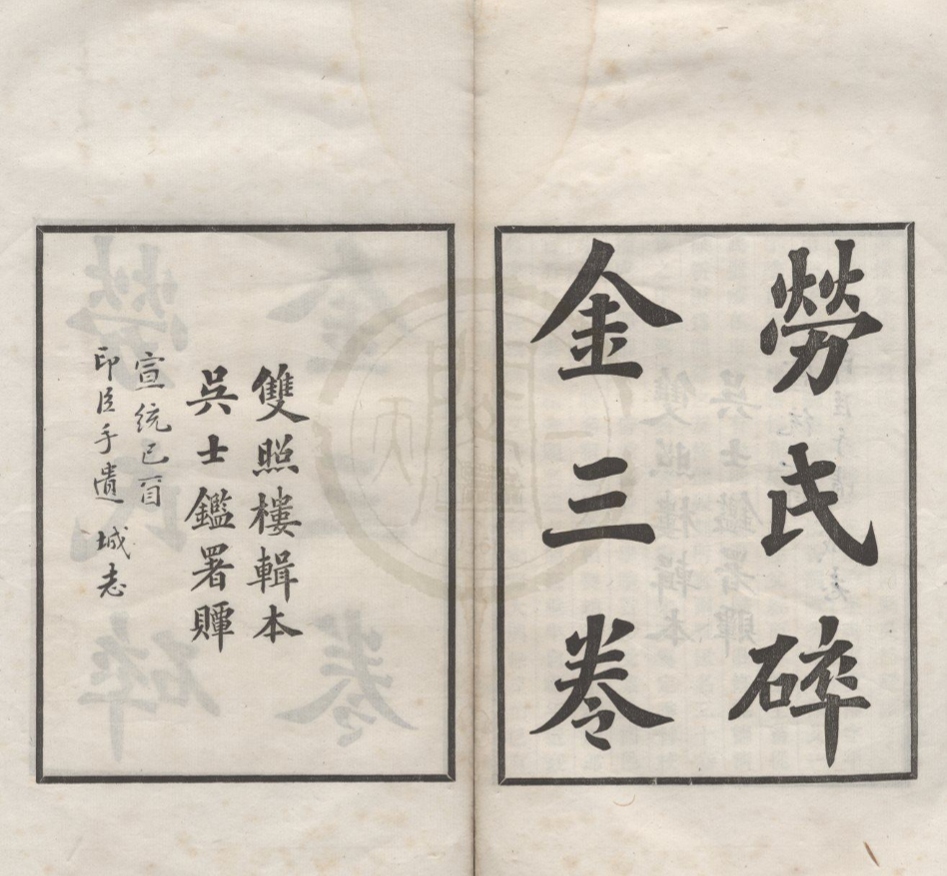 勞氏碎
金三卷
雙照樓輯本
吳士鑑署
宣統己酉
印臣手遺 志